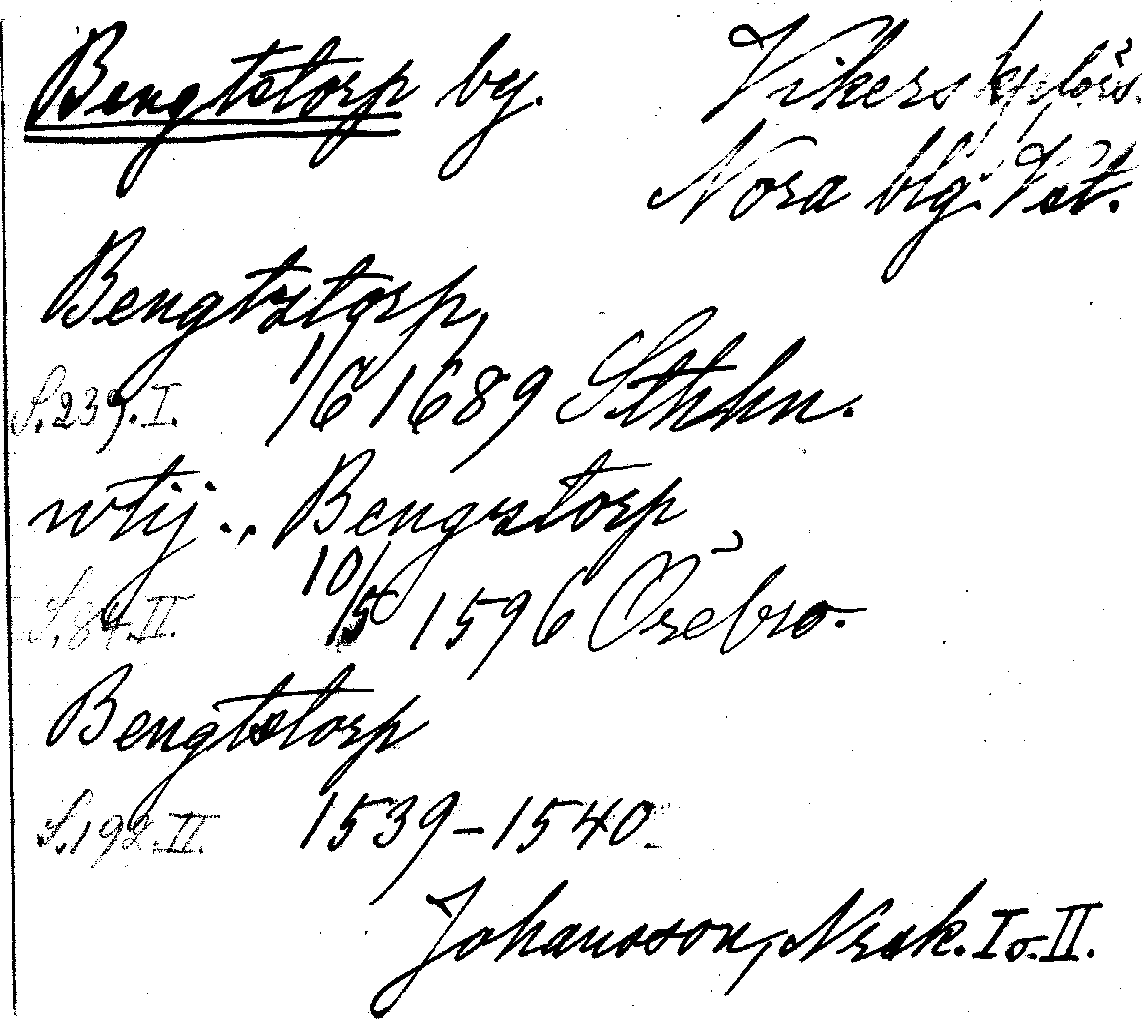 Bengtstorp by.
Vikers kplörs.
Nora blg. Vst.
Bengtztorp,
S. 239. I. 1/6 1689 Sthhn.
wtij .,, Bengzstorp
S. 84. II. 10/5 1596 Örebro.
Bengtstorp
S. 192. II. 1539-1540.
Johansson, Nrsk. I o. II.